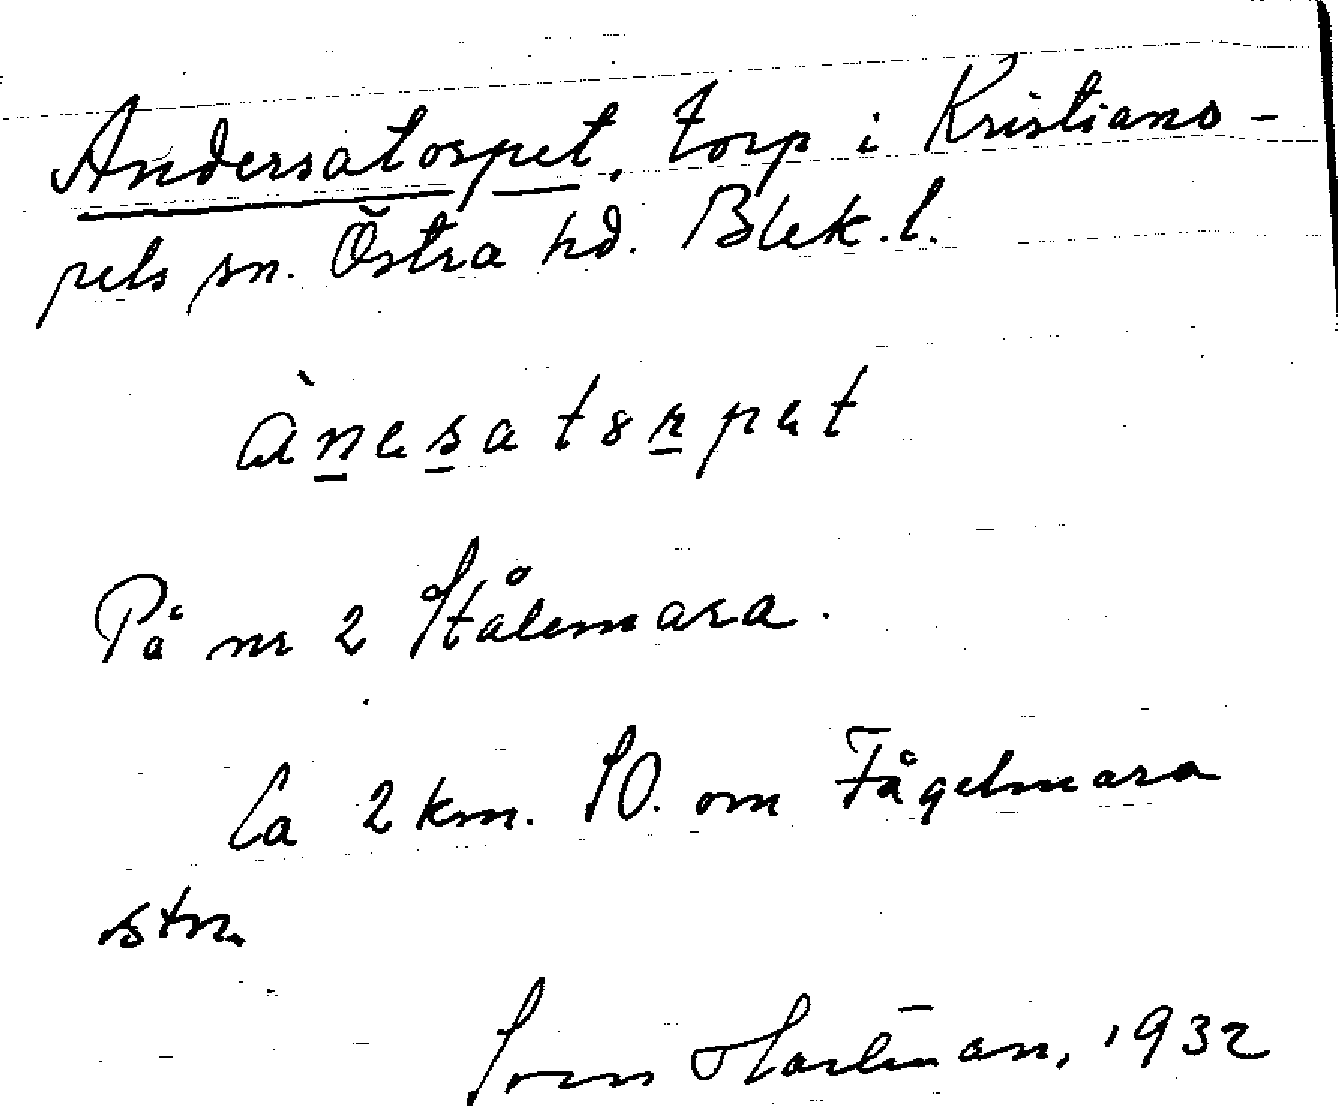 Andersatorpet, torp i Kristiano-
pels sn. Östra hd. Blek. l.
På nr 2 Stålemara.
Ca 2 km. SO. om Fågelmara
stn.
Hartman, 1932